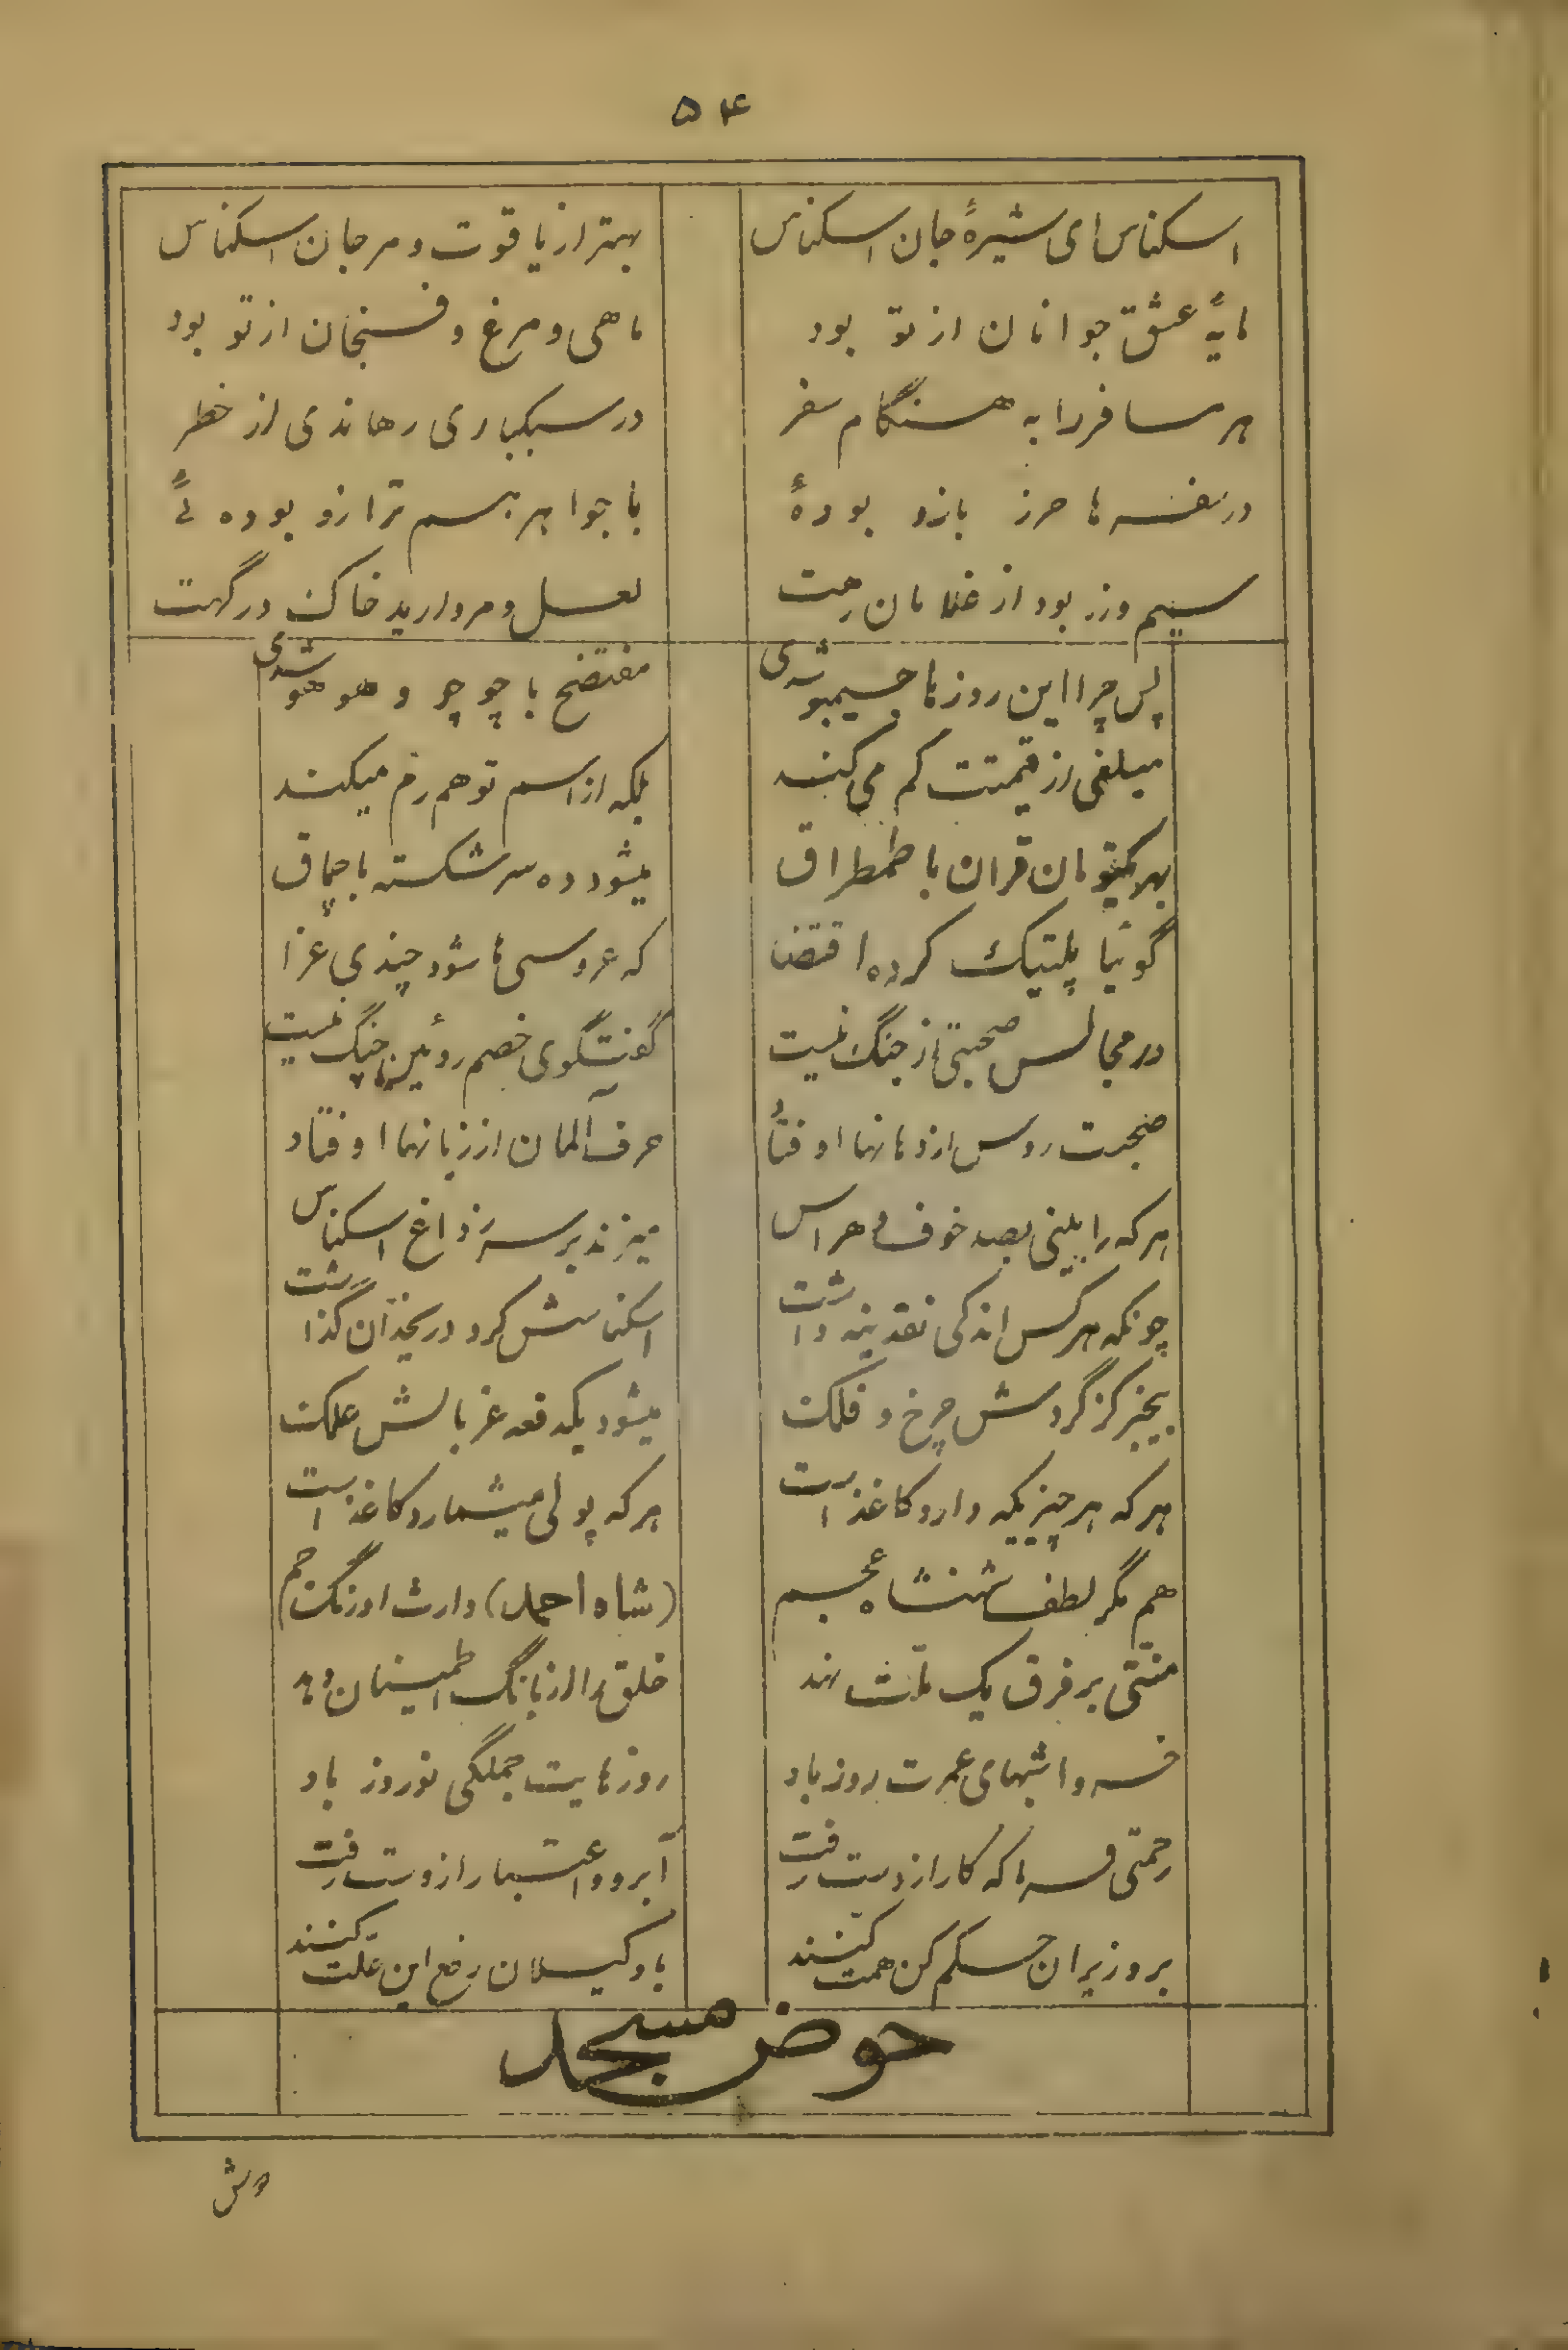 ۵۴
اسکناس ای شیرهٔ جان اسکناس بهتر از یاقوت و مرجان اسکناس
مایهٔ عشق جوانان از تو بود ماهی و مرغ و فسنجان از تو بود
هر مسافر را به هنگام سفر در سبکباری رهاندی از خطر
در سفرها حرز بازو بودهٔ با جواهر هم ترازو بوده‌ئی
سیم و زر بود از غلامان رهت لعل و مروارید خاک درگهت
پس چرا این روزها جیمبو شدی مفتضح با چو چو و هو هو شدی
مبلغی از قیمتت کم می کنند بلکه از اسم تو هم رم میکنند
بهر یکتومان قران با طمطراق میشود ده سر شکسته با چماق
گوئیا پلتیک کرده اقتضا که عروسی ها شود چندی عزا
در مجالس صحبتی از جنگ نیست گفتگوی خصم روئین چنگ نیست
صحبت روس از دهانها اوفتاد حرف آلمان از زبانها اوفتاد
هر که را بینی بصد خوف و هراس میزند بر سر ز داغ اسکناس
چونکه هر کس اندکی نقدینه داشت اسکناسش کرد در یخدان گذاشت
بیخبر کز گردش چرخ و فلک میشود یکدفعه غربالش علک
هر که هر چیزیکه دارد کاغذ است هر که پولی میشمارد کاغذ است
هم مگر لطف شهنشاه عجم (شاه احمد) وارث اورنگ جم
منتی بر فرق یک ملت نهد خلق را از بانگ اطمینان دهد
خسروا شبهای عمرت روز باد روزهایت جملگی نوروز باد
رحمتی فرما که کار از دست رفت آبرو و اعتبار از دست رفت
بر وزیران حکم کن همت کنند با وکیلان رفع این علت کنند
حوض مسجد